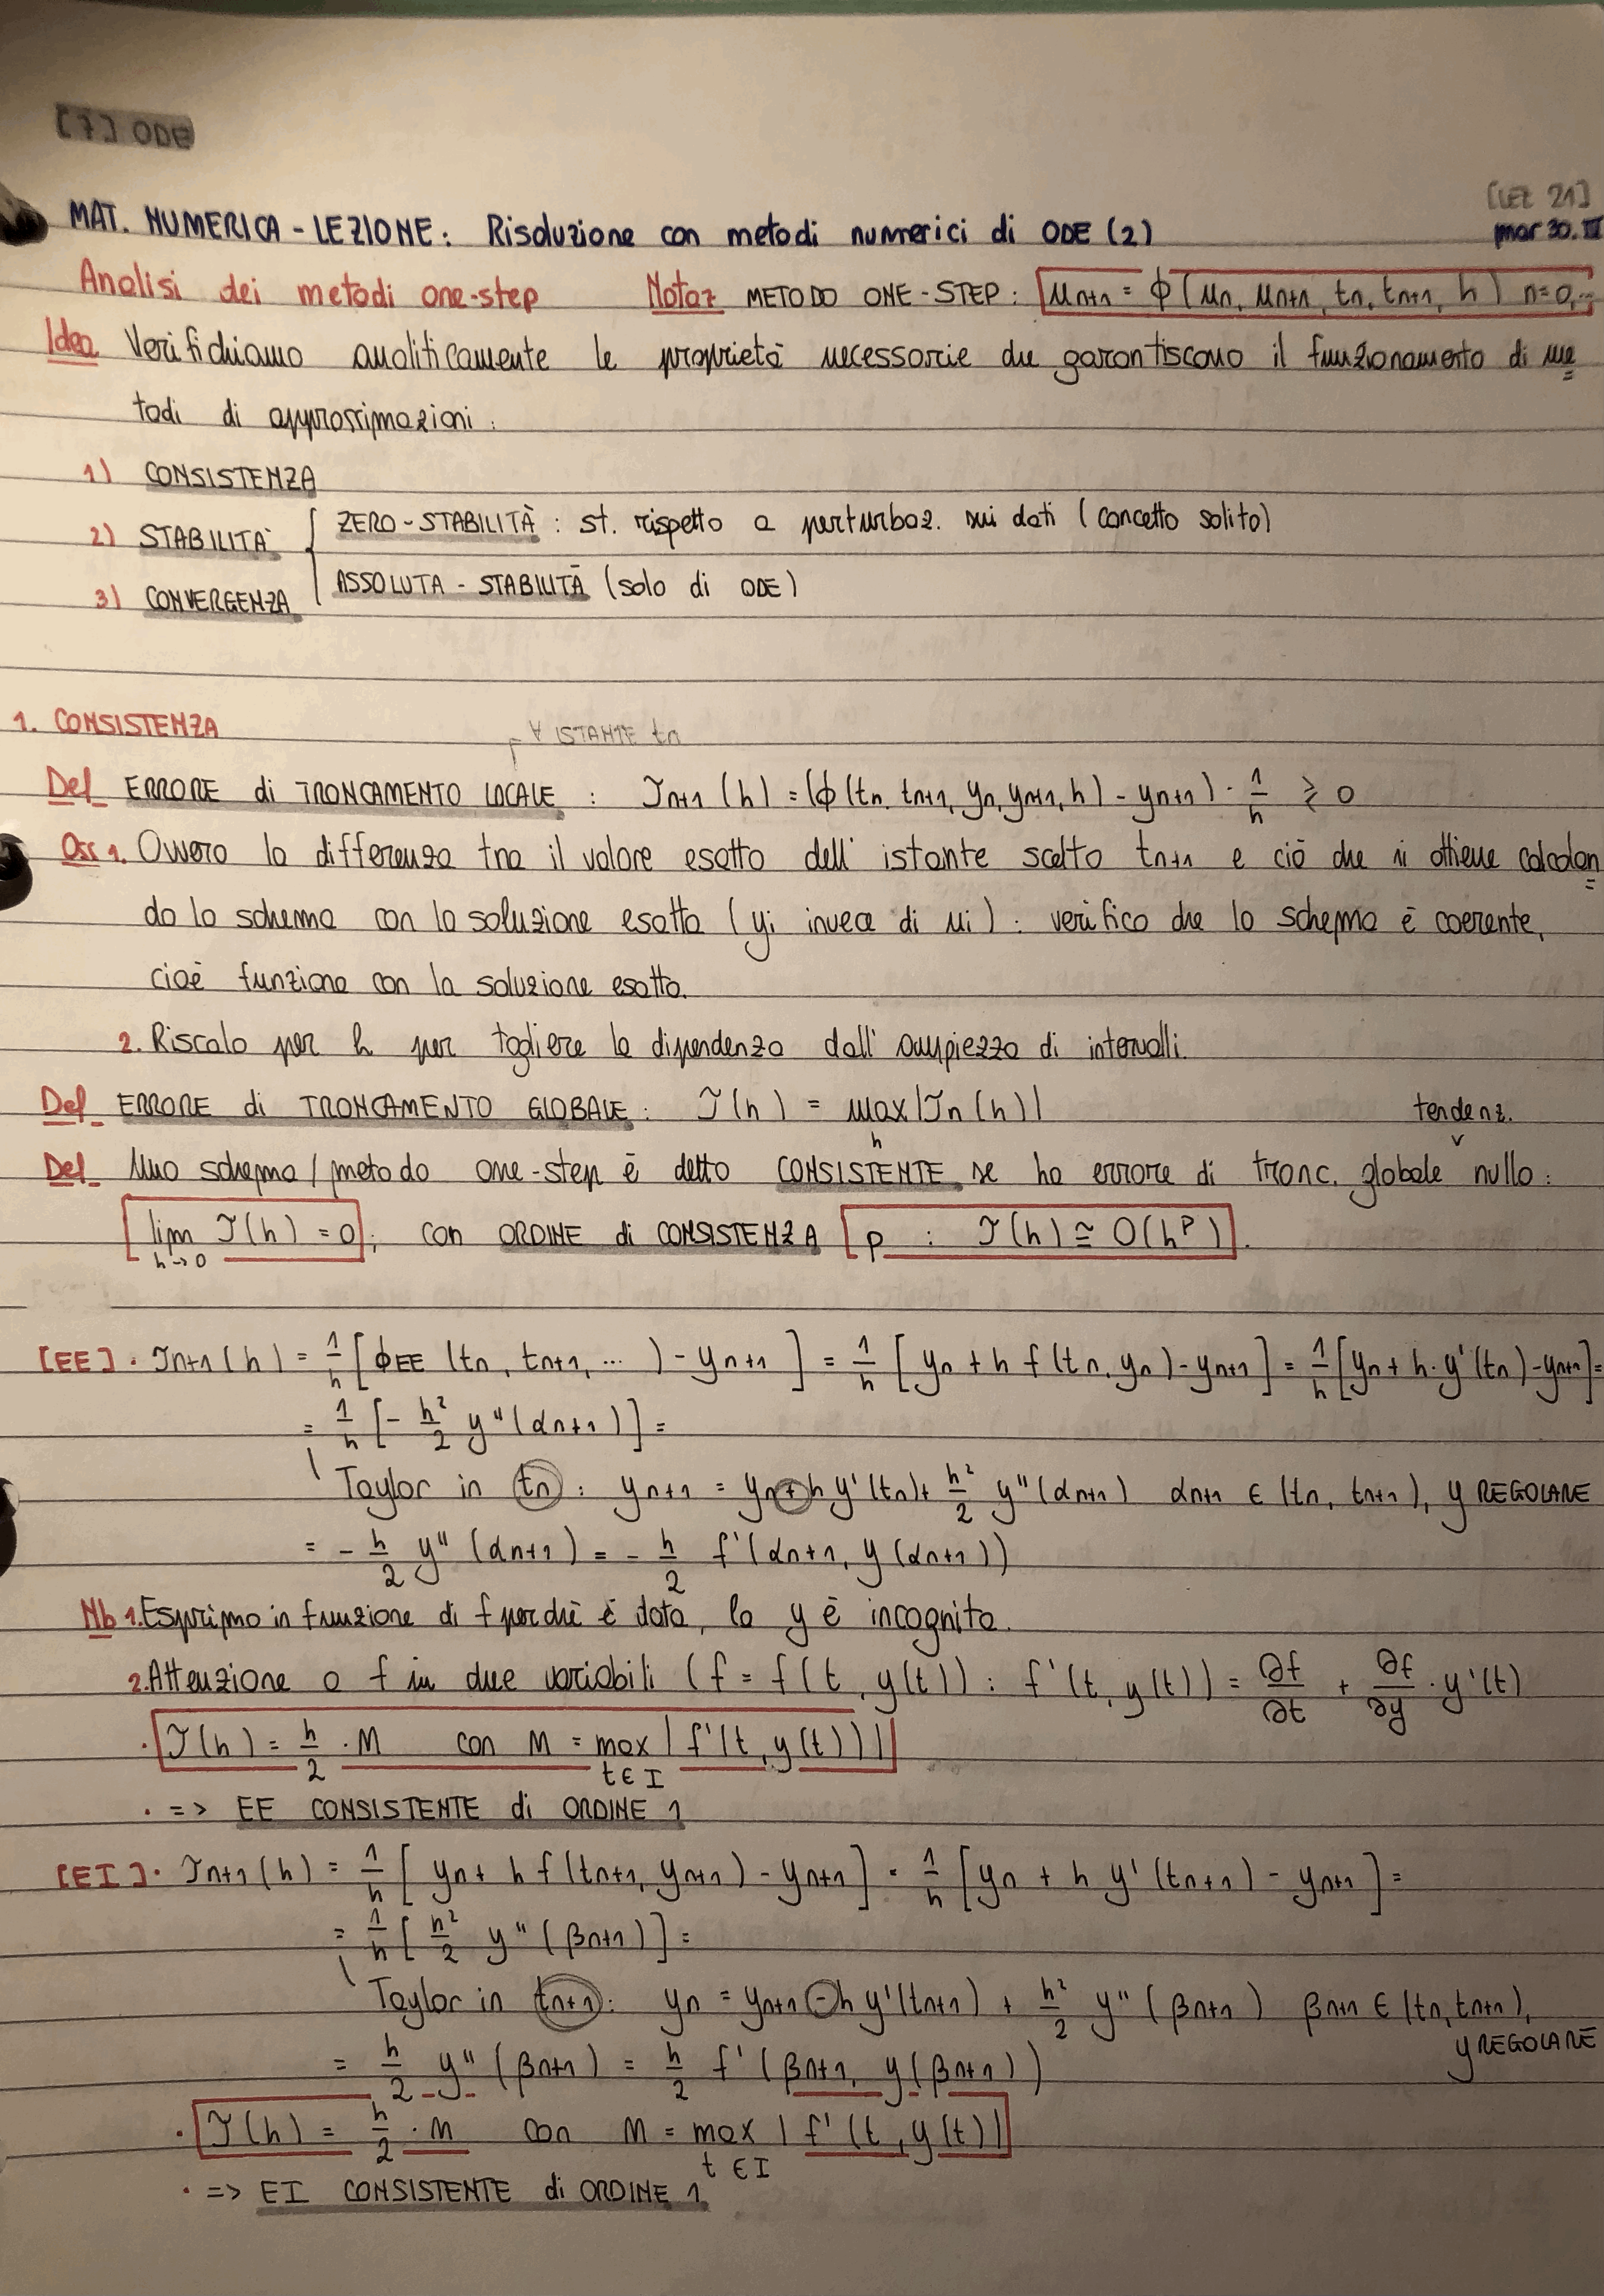 [7] ODE
[LEZ 21]
MAT. NUMERICA - LEZIONE: Risoluzione con metodi numerici di ODE (2) mar 30.III
Analisi dei metodi one-step Notaz METODO ONE-STEP: u_{n+1} = ϕ(u_n, u_{n+1}, t_n, t_{n+1}, h) n=0,...
Idea Verifichiamo analiticamente le proprietà necessarie che garantiscono il funzionamento di me
todi di approssimazioni:
1) CONSISTENZA
2) STABILITÀ { ZERO-STABILITÀ: st. rispetto a perturbaz. sui dati (concetto solito)
ASSOLUTA-STABILITÀ (solo di ODE)
3) CONVERGENZA
1. CONSISTENZA
∀ ISTANTE t_n
Def ERRORE di TRONCAMENTO LOCALE: τ_{n+1}(h) = (ϕ(t_n, t_{n+1}, y_n, y_{n+1}, h) - y_{n+1}) · 1/h ≥ 0
Oss 1. Ovvero la differenza tra il valore esatto dell'istante scelto t_{n+1} e ciò che si ottiene calcolan
do lo schema con la soluzione esatta (y_i invece di u_i): verifico che lo schema è coerente,
cioè funziona con la soluzione esatta.
2. Riscalo per h per togliere la dipendenza dall'ampiezza di intervalli.
Def ERRORE di TRONCAMENTO GLOBALE: τ(h) = max_h |τ_n(h)|
tendenz.
Def Uno schema/metodo one-step è detto CONSISTENTE se ha errore di tronc. globale nullo:
lim_{h→0} τ(h) = 0; con ORDINE di CONSISTENZA p : τ(h) ≅ O(h^p).
[EE] · τ_{n+1}(h) = 1/h [ϕ_EE (t_n, t_{n+1}, ...) - y_{n+1}] = 1/h [y_n + h f(t_n, y_n) - y_{n+1}] = 1/h [y_n + h · y'(t_n) - y_{n+1}] =
= 1/h [- h²/2 y''(α_{n+1})] =
Taylor in t_n: y_{n+1} = y_n + h y'(t_n) + h²/2 y''(α_{n+1}) α_{n+1} ∈ (t_n, t_{n+1}), y REGOLARE
= - h/2 y''(α_{n+1}) = - h/2 f'(α_{n+1}, y(α_{n+1}))
Nb 1. Esprimo in funzione di f perchè è data, la y è incognita.
2. Attenzione a f in due variabili (f = f(t, y(t)): f'(t, y(t)) = ∂f/∂t + ∂f/∂y · y'(t)
· τ(h) = h/2 · M con M = max_{t∈I} |f'(t, y(t))|
· => EE CONSISTENTE di ORDINE 1
[EI] · τ_{n+1}(h) = 1/h [y_n + h f(t_{n+1}, y_{n+1}) - y_{n+1}] = 1/h [y_n + h y'(t_{n+1}) - y_{n+1}] =
= 1/h [h²/2 y''(β_{n+1})] =
Taylor in t_{n+1}: y_n = y_{n+1} - h y'(t_{n+1}) + h²/2 y''(β_{n+1}) β_{n+1} ∈ (t_n, t_{n+1}),
y REGOLARE
= h/2 y''(β_{n+1}) = h/2 f'(β_{n+1}, y(β_{n+1}))
· τ(h) = h/2 · M con M = max_{t∈I} |f'(t, y(t))|
· => EI CONSISTENTE di ORDINE 1